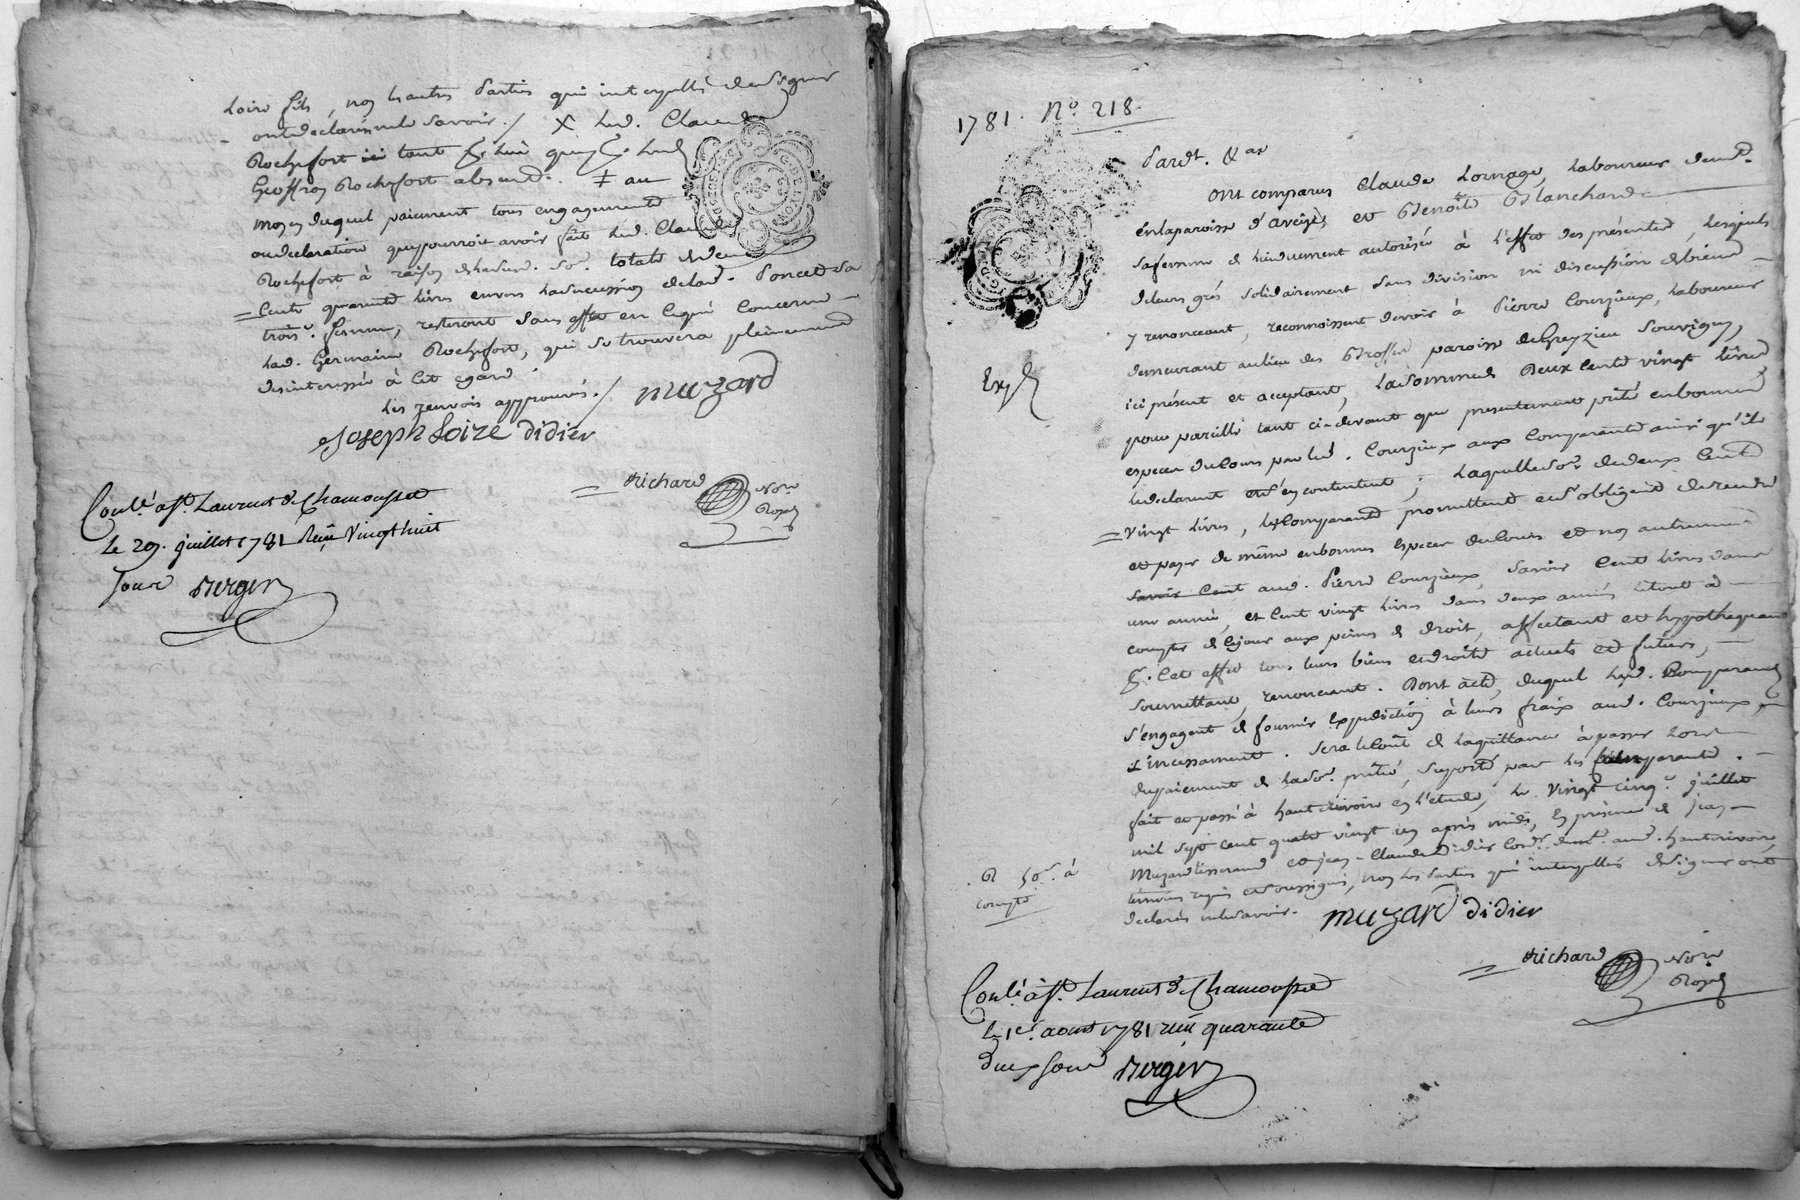 Loire fils, non les autres parties qui interpellés de signer
ont déclaré ne le savoir. / X lad. Claude
Rochefort tant pr. lui que pr. led.
Geoffroy Rochefort absent. ‡ au
moyen duquel paiement tous engagements
ou déclaration que pourroit avoir fait led. Claude
Rochefort à raison de lad. so. totale de deux
cents quarante livres envers la succession de lad. Poncet sa
trois. femme, resteront sans effet en ce qui concerne
lad. Germaine Rochefort, qui se trouvera pleinement
desinteressée à cet egard
les renvois approuvés. / muzard
Joseph Loire didier
richard Nore
Royal
Conlé à St. Laurent de Chamousset
le 29. juillet 1781 Reçu Vingt huit
sous Berger
1781. No. 218.
Pardt. &ar
ont comparus Claude Lornage, laboureur demt.
en la paroisse d'aveize et Benoite Blanchard
sa femme de lui duement autorisée à l'effet des présentes, lesquels
de leurs grés solidairement sans division ni discussion de biens
y renonceant, reconnoissent devoir à Pierre Courzieux, laboureur
demeurant au lieu des paroisse de Grezieu Souvigny,
ici présent et acceptant, la somme de deux cents vingt livres
pour pareille tant ci-devant que presentement prêté en bonnes
especes du cours par led. Courzieux aux comparants ainsi qu'ils
le declarent et s'en contentent; laquelle so. de deux cents
vingt livres, les comparants promettent et s'obligent de rendre
et payer de même en bonnes especes du cours et non autrement
savoir cent aud. Pierre Courzieux, savoir cent livres dans
une année, et cent vingt livres dans deux années le tout à
compter de ce jour aux peines de droit, affectant et hypothequant
pr. cet effet tous leurs biens et droits actuels et futurs,
soumettant, renonceant. Dont acte, duquel lesd. comparants
s'engagent de fournir expedition à leurs fraix aud. Courzieux,
incessament. sera le coût de la quittance à passer lors
du paiement de lad. so. prêtée, suporté par les comparants.
fait et passé à hauterivoire en l'etude, le vingt cinq juillet
mil sept cent quatre vingt un après midi, en presence de jean
Muzard tisserand et jean-Claude didier cord. demt. aud. hauterivoire,
témoins requis et soussignés, non les parties qui interpellées de signer ont
declaré ne le savoir. muzard didier
Expé
R 50s. à
compte
richard Nore
Royal
Conlé à St. Laurent de Chamousset
le 1er. aoust 1781 reçu quarante
deux sous Berger